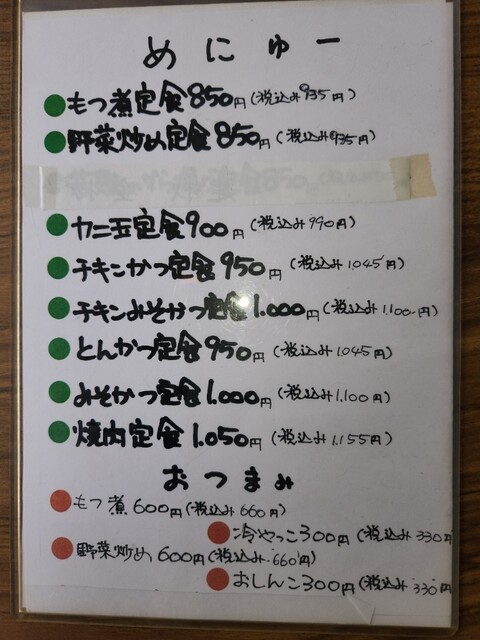 めにゅー
もつ煮定食850円(税込み935円)
野菜炒め定食850円(税込み935円)
カニ玉定食900円(税込み990円)
チキンかつ定食950円(税込み1045円)
チキンみそかつ定食1.000円(税込み1.100円)
とんかつ定食950円(税込み1045円)
みそかつ定食1.000円(税込み1.100円)
焼肉定食1.050円(税込み1.155円)
おつまみ
もつ煮600円(税込み660円)
冷やっこ300円(税込み330円
野菜炒め600円(税込み660円)
おしんこ300円(税込み330円